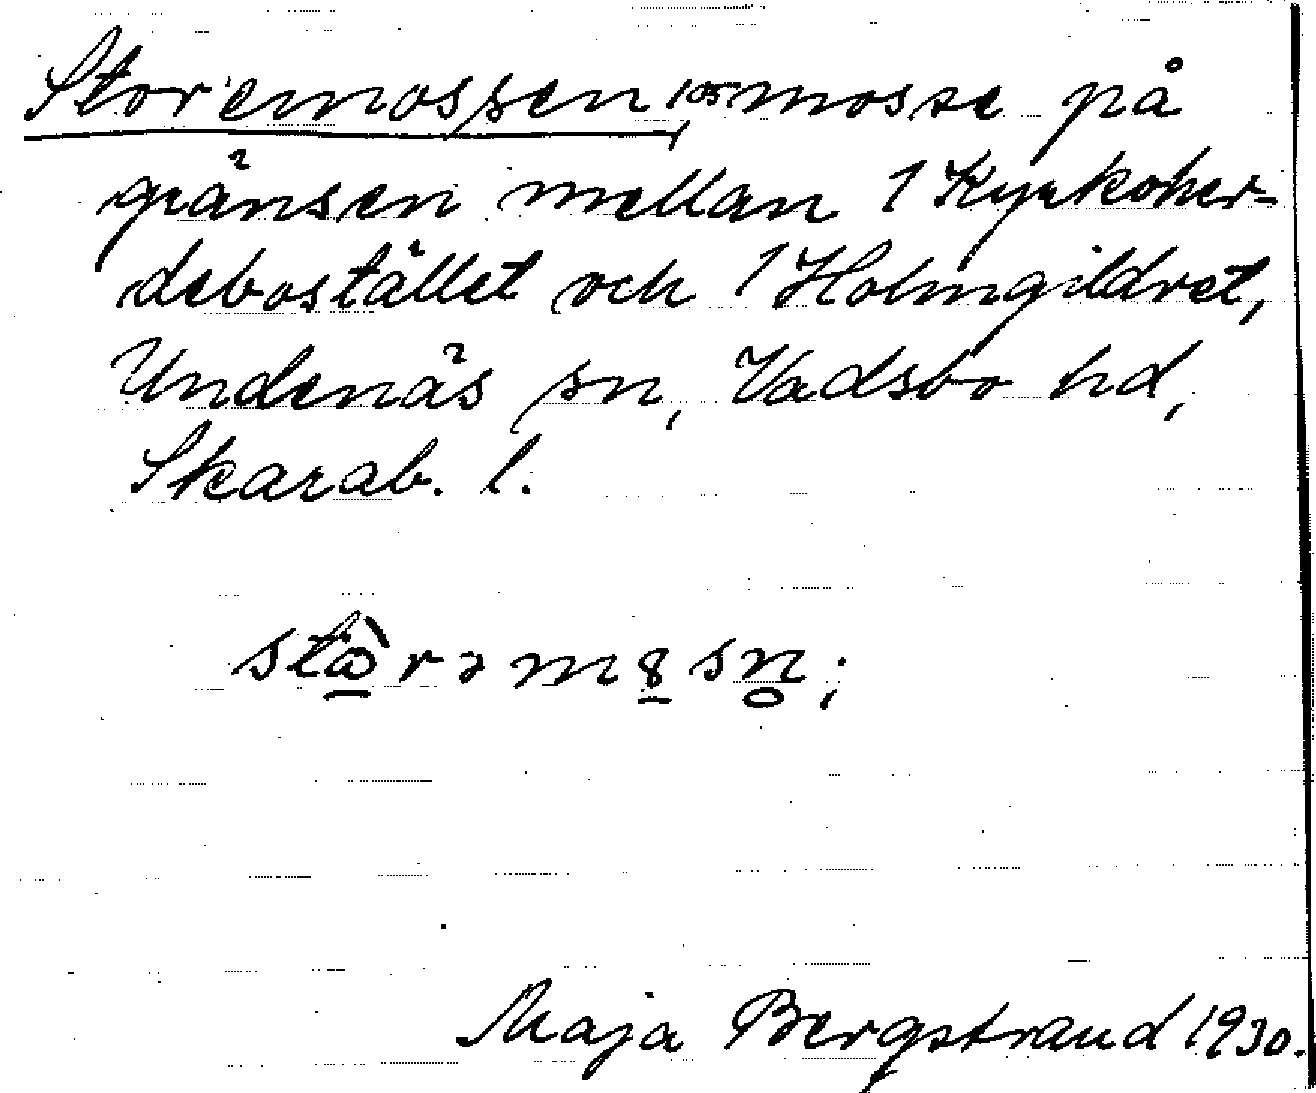 Storemossen, 105 mosse på
gränsen mellan 1 Kyrkoher-
debostället och 1 Holmgildret,
Undenäs sn, Vadsbo hd,
Skarab. l.
Maja Bergstrand 1930.